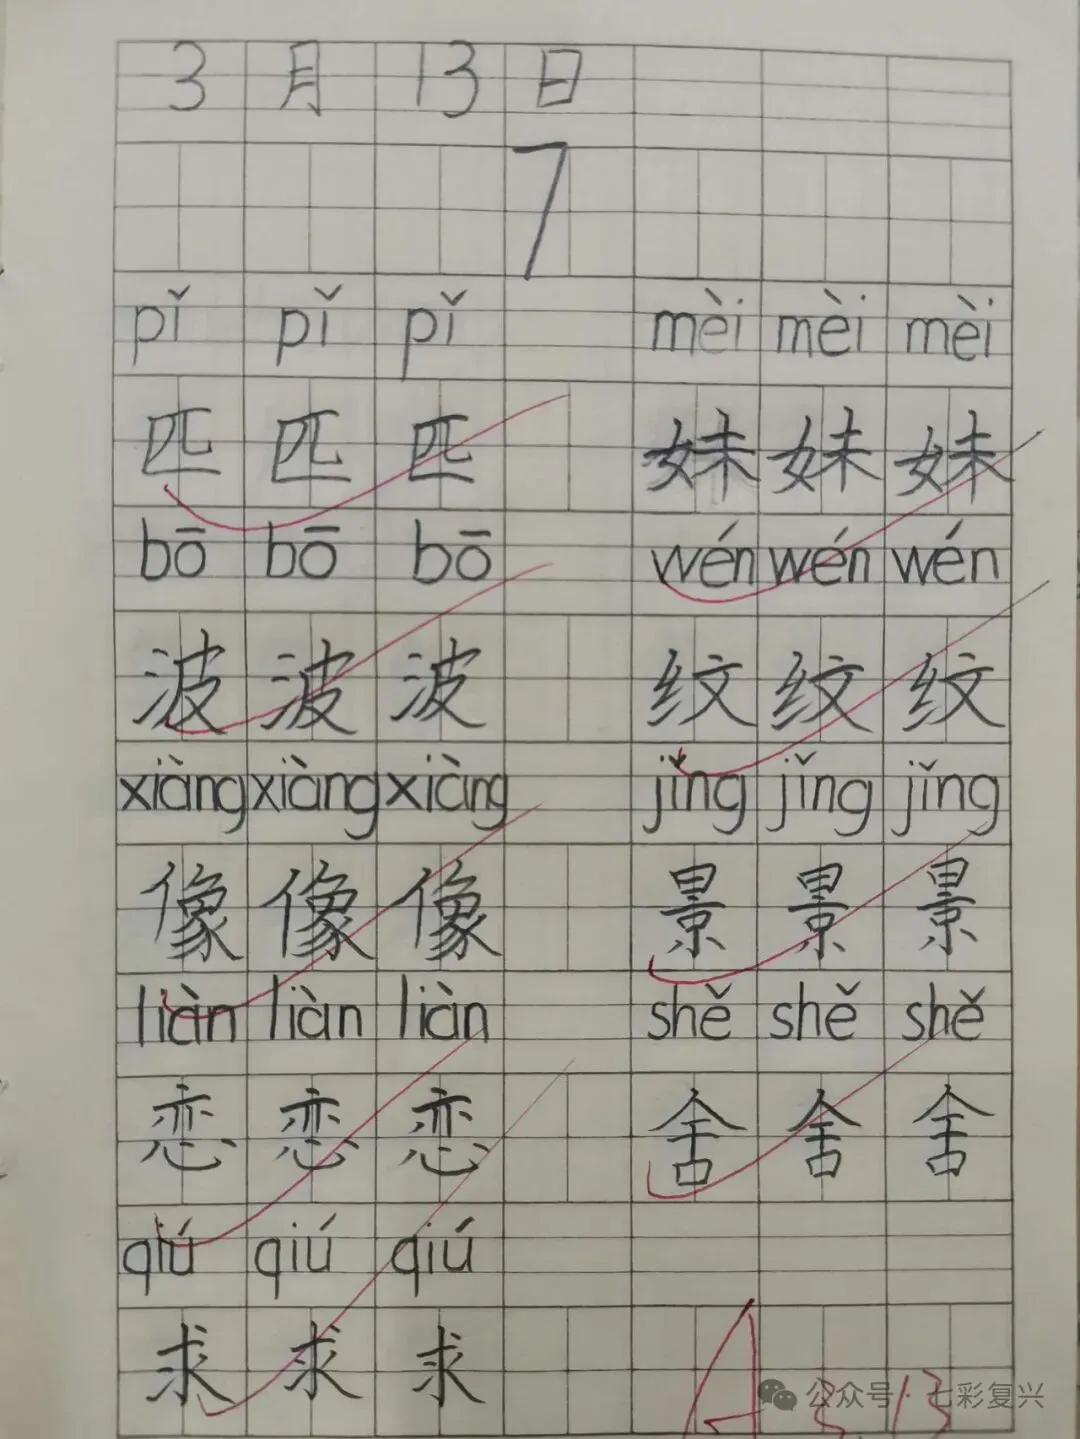 3月13日
7
pǐ pǐ pǐ mèi mèi mèi
匹 匹 匹 妹 妹 妹
bō bō bō wén wén wén
波 波 波 纹 纹 纹
xiàng xiàng xiàng jǐng jǐng jǐng
像 像 像 景 景 景
liàn liàn liàn shě shě shě
恋 恋 恋 舍 舍 舍
qiú qiú qiú
求 求 求
A 3.13
公众号·七彩复兴